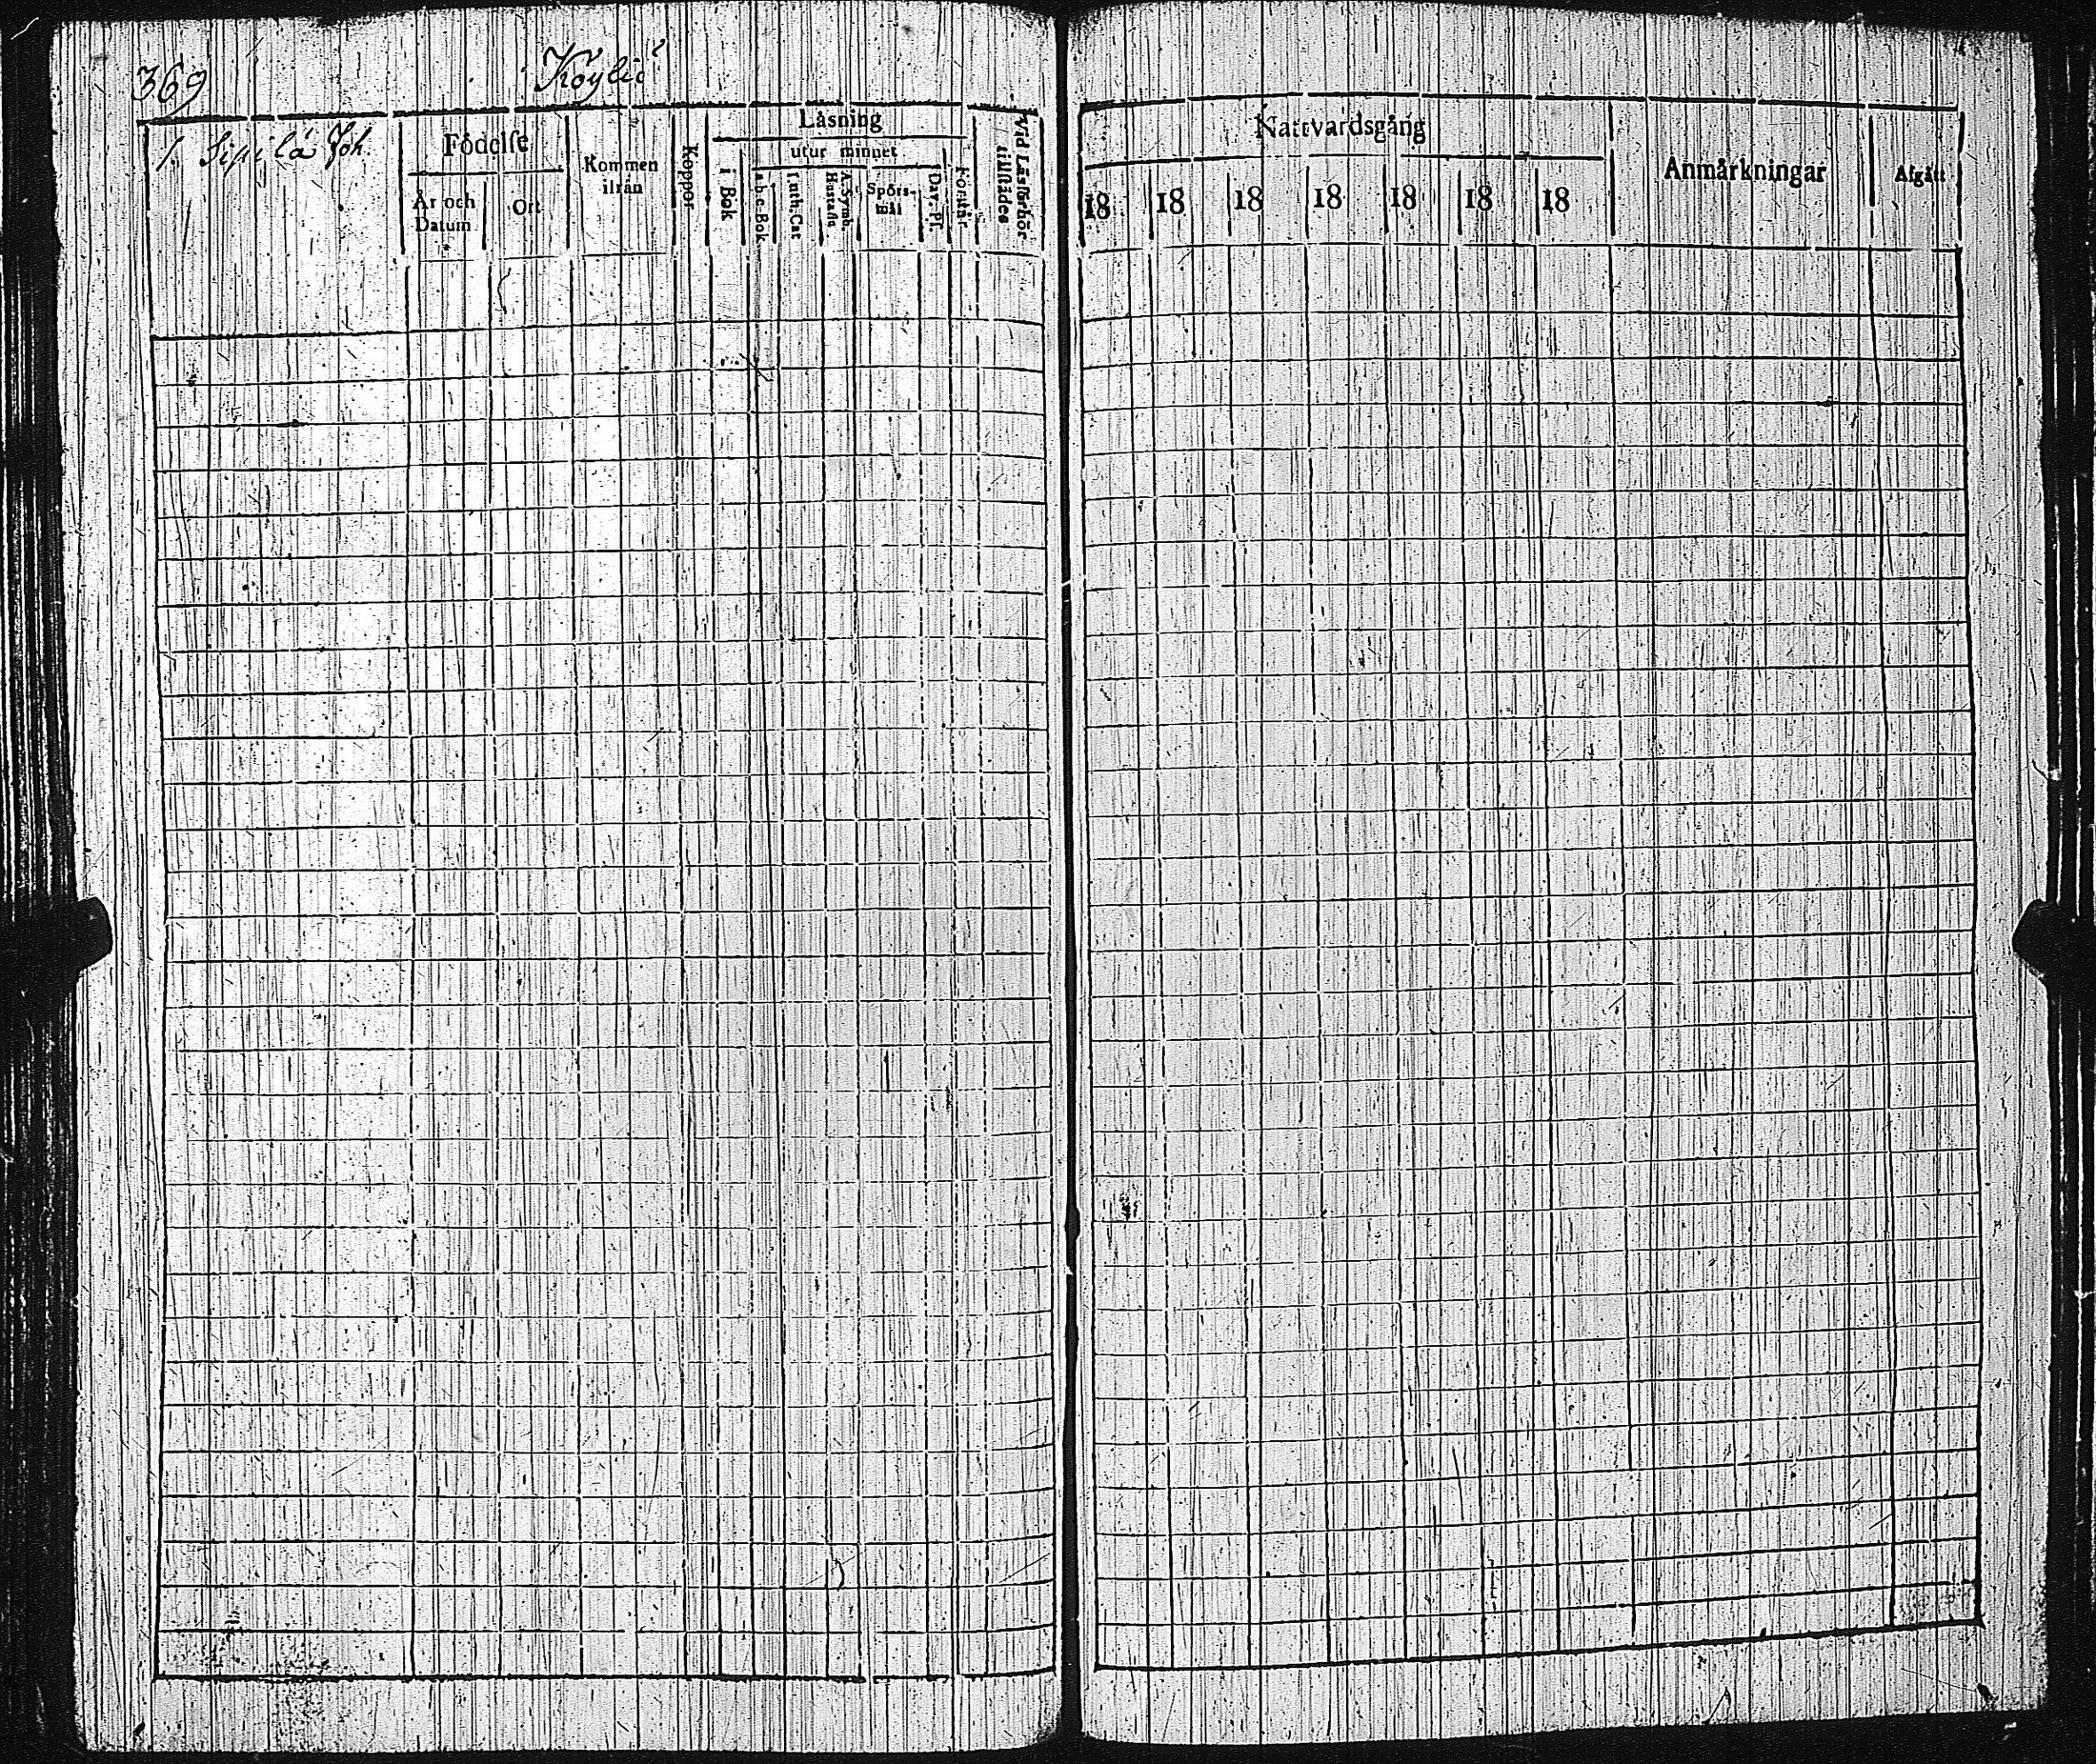 369
Köyliö
1. Sipilä Joh
Födelse
År och Datum
Ort
Kommen ifrån
Koppor
Läsning
i Bok
utur minnet
a.b.c-Bok
Luth. Cat
A. Symb. Hustafla
Spörs-mål
Dav. Ps.
Förstår
Vid Läsförhör tillstädes
Nattvardsgång
18 18 18 18 18 18 18
Anmärkningar
Afgått